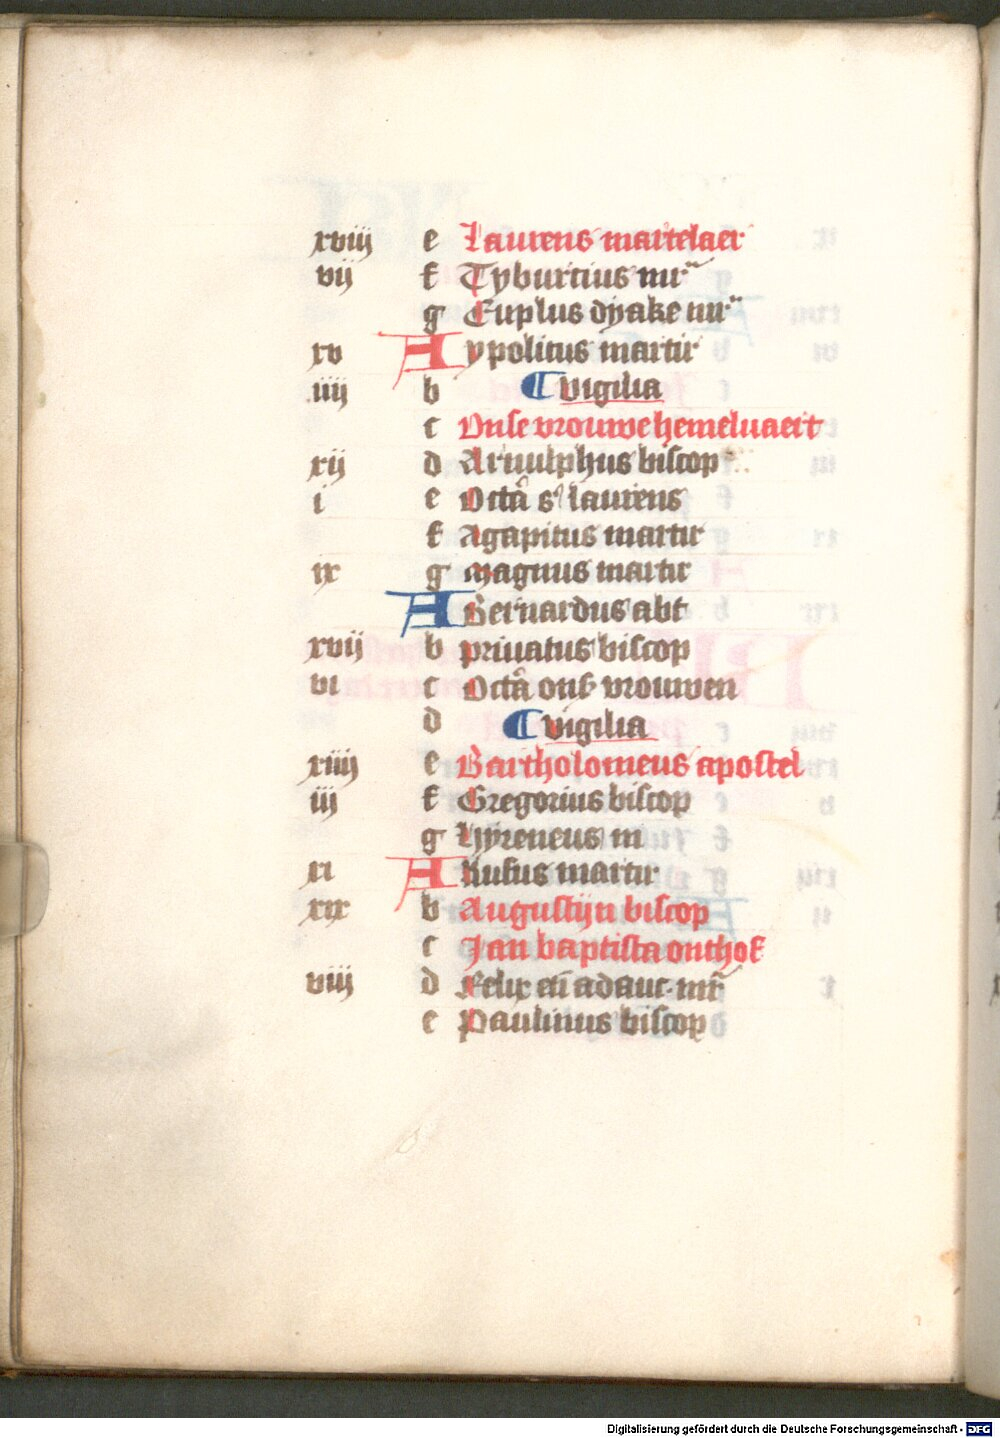 xviij e Laurens martelaer
vij f Tyburtius mr̄
g Euplus dyake mr̄
xv A ypolitus martir
iiij b ⸿ vigilia
c Onse vrouwe hemeluaert
xij d Arnulphus biscop
i e Octā s' laurens
f Agapitus martir
ix g Magnus martir
A Bernardus abt
xvij b priuatus biscop
vi c Octā ons vrouwen
d ⸿ vigilia
xiiij e Bartholomeus apostel
iij f Gregorius biscop
g Hyreneus m
xi A Rufus martir
xix b Augustijn biscop
c Jan baptista onthof
viij d Felix eñ adauc mr̄
e Paulinus biscop
Digitalisierung gefördert durch die Deutsche Forschungsgemeinschaft - DFG